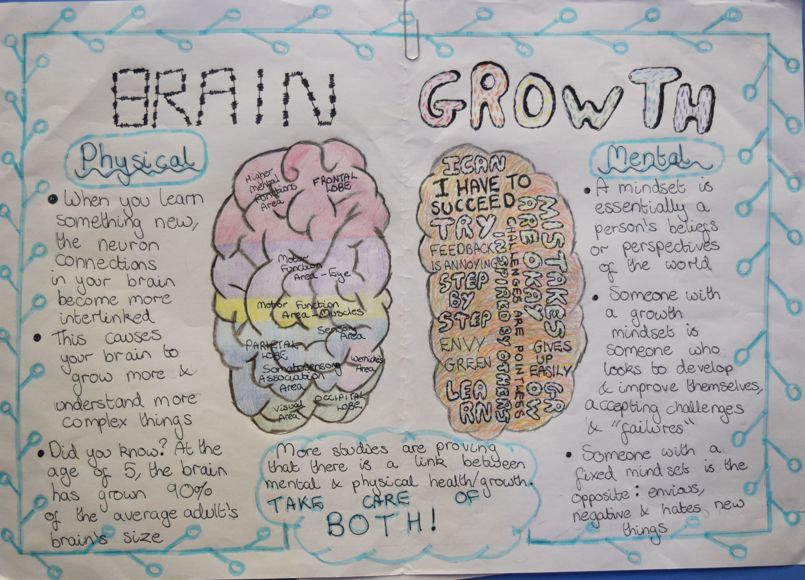 BRAIN GROWTH
Physical
• When you learn
something new,
the neuron
connections
in your brain
become more
interlinked
• This causes
your brain to
grow more &
understand more
complex things
• Did you know? At the
age of 5, the brain
has grown 90%
of the average adult's
brain's size
Higher
Mental
Functions
Area
FRONTAL
LOBE
Motor
Function
Area - Eye
Motor Function
Area - Muscles
Sensory
Area
PARIETAL
LOBE
Wernicke's
Area
Somatosensory
Association
Area
Visual
Area
OCCIPITAL
LOBE
I CAN
I HAVE TO
SUCCEED
TRY
FEEDBACK
IS ANNOYING
STEP
BY
STEP
ENVY
GREEN
LEA
RN
MISTAKES
ARE OKAY
CHALLENGES ARE POINTLESS
INSPIRED BY OTHERS
GIVES
UP
EASILY
GR
OW
Mental
• A mindset is
essentially a
person's beliefs
or perspectives
of the world
• Someone with
a growth
mindset is
someone who
looks to develop
& improve themselves,
accepting challenges
& "failures"
• Someone with a
fixed mindset is the
opposite: envious,
negative & hates new
things
More studies are proving
that there is a link between
mental & physical health/growth.
TAKE CARE OF
BOTH!